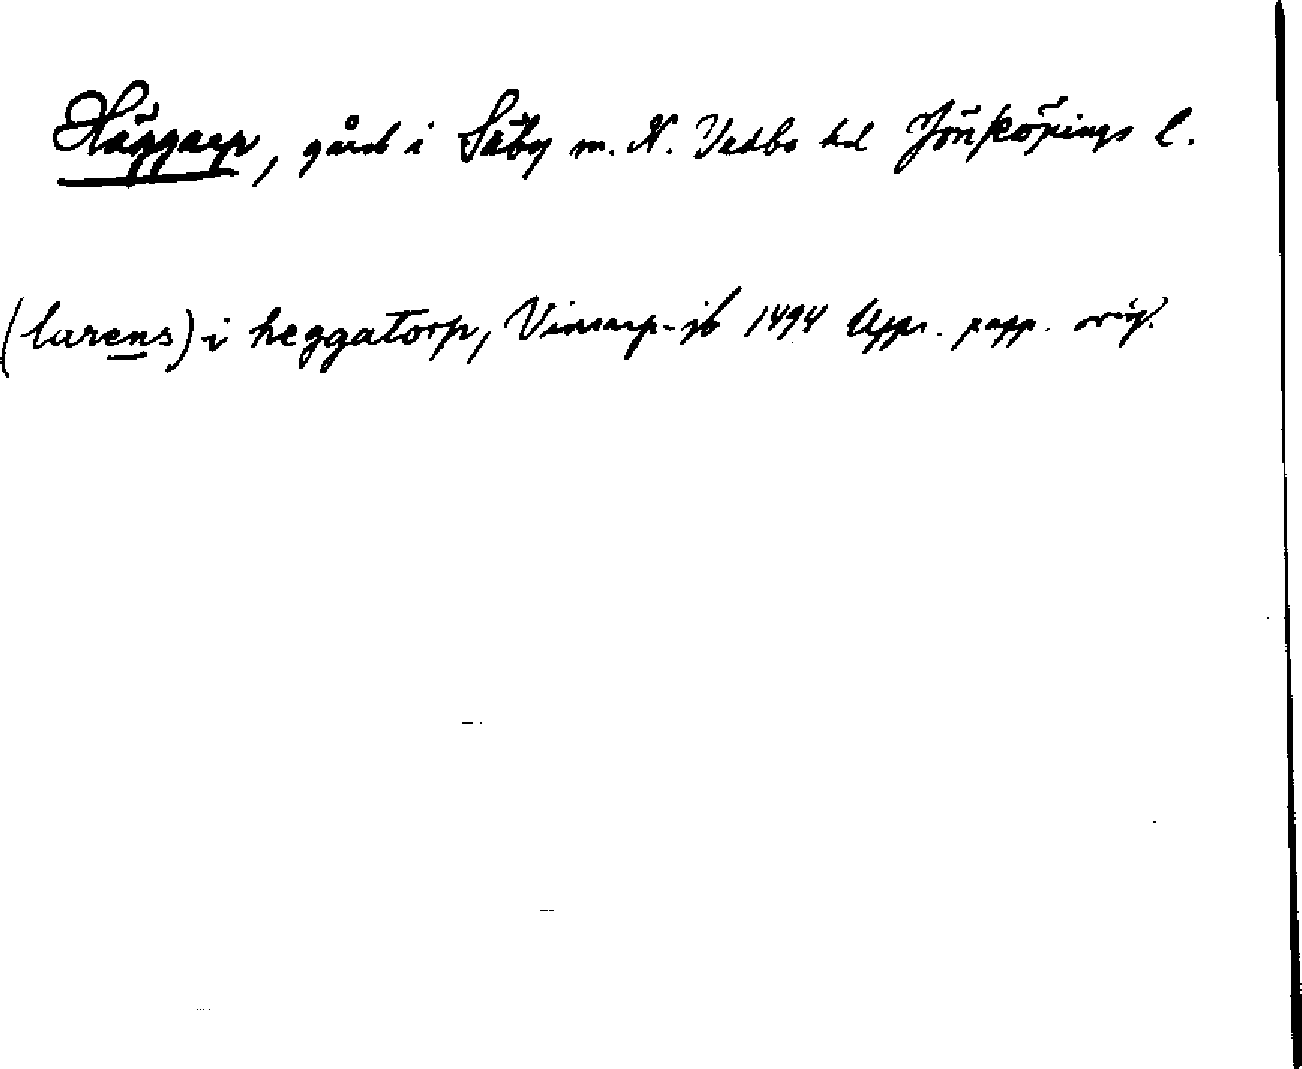 Häggarp, gård i Säby sn. N. Vedbo hd Jönköpings l.
(larens) i heggatorp, Vinsarp-jb 1494 Upps. papp. orig.